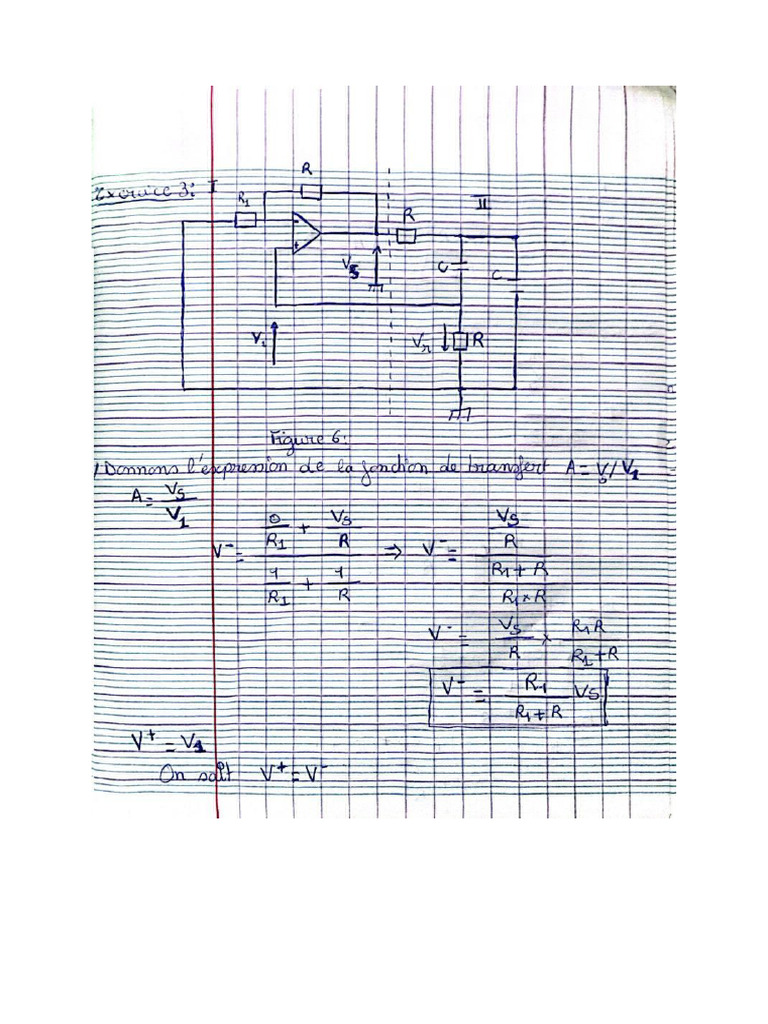 Exercice 3: I
R
R1
II
R
-
+
VS
C
C
V1
Vr
R
Figure 6:
1/Donnons l'expression de la fonction de transfert A = VS/V1
A = VS/V1
V- = (0/R1 + VS/R)/(1/R1 + 1/R) => V- = (VS/R)/((R1+R)/(R1×R))
V- = VS/R × R1R/(R1+R)
V- = R1/(R1+R) VS
V+ = V1
On sait V+ = V-